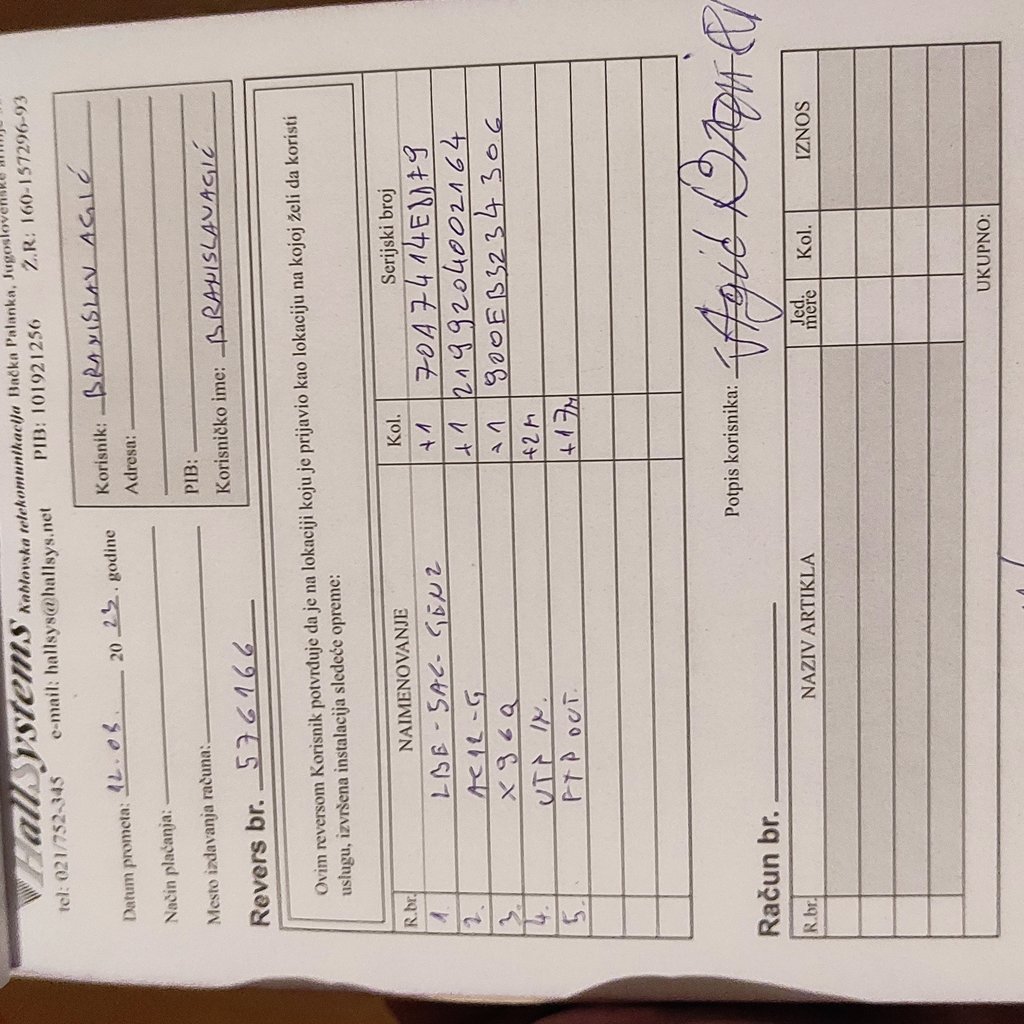 HallSystems Kablovska telekomunikacija Bačka Palanka, Jugoslovenske
tel: 021/752-345 e-mail: hallsys@hallsys.net PIB: 101921256 Ž.R: 160-157296-93
Datum prometa: 12.08. 2023. godine
Način plaćanja:
Mesto izdavanja računa:
Korisnik: BRANISLAV AGIĆ
Adresa:
PIB:
Korisničko ime: BRANISLAVAGIĆ
Revers br. 576166
Ovim reversom Korisnik potvrđuje da je na lokaciji koju je prijavio kao lokaciju na kojoj želi da koristi
uslugu, izvršena instalacija sledeće opreme:
R.br. NAIMENOVANJE Kol. Serijski broj
1. LBE-5AC-GEN2 +1 70A7414EDD79
2. AC12-G +1 2199204002164
3. X96Q +1 900EB3234306
4. UTP IN. +2m
5. FTP OUT. +17m
Potpis korisnika: Agić
Račun br.
R.br. NAZIV ARTIKLA Jed. mere Kol. IZNOS
UKUPNO: